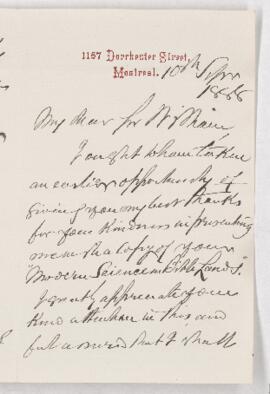 1157 Dorchester Street,
Montreal.
10th Novr
1888
My dear Sir William
I ought to have taken
an earlier opportunity of
giving you my best thanks
for your kindness in presenting
me with a copy of your
"Modern Science in Bible Lands".
I greatly appreciate your
kind attention in this and
feel assured that I shall